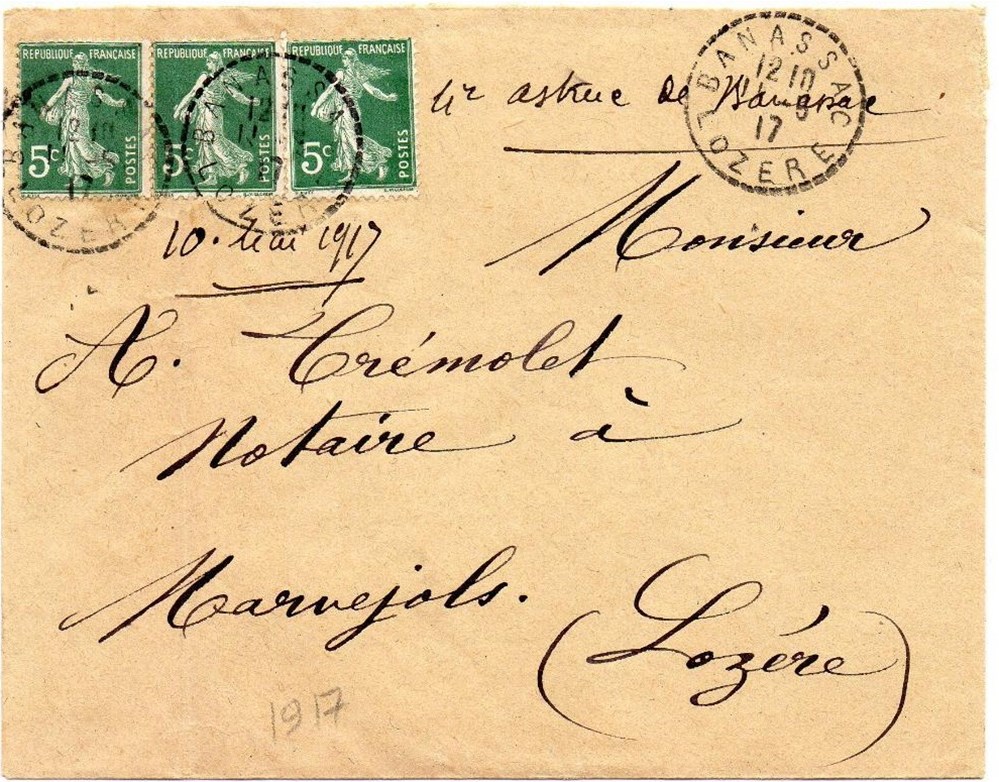 REPUBLIQUE FRANÇAISE
5c
POSTES
REPUBLIQUE FRANÇAISE
5c
POSTES
REPUBLIQUE FRANÇAISE
5c
POSTES
BANASSAC
12 10
5
17
LOZERE
de Banassac
10. Mai 1917
Monsieur
A. Trémolet
Notaire à
Marvejols.
(Lozére)
1917